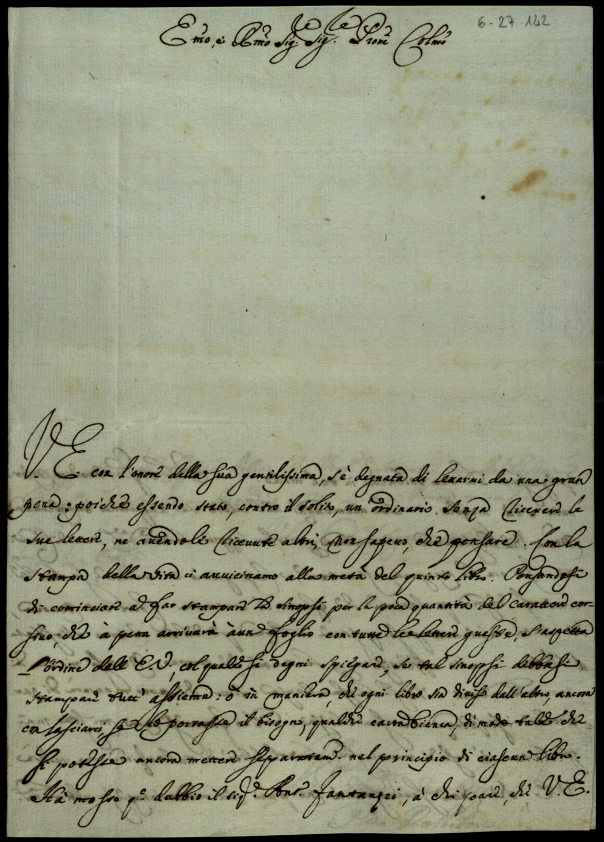 6-27.142
Emo, e Rmo Sig.re Sig.re Prone Colmo
V. E. con l'onore della sua gentilissima, s'è degnata di levarmi da una gran
pena: poichè essendo stato, contro il solito, un ordinario senza ricevere le
sue lettere, ne avendole ricevute altri, non sapevo, che pensare. Con la
stampa della vita ci avviciniamo alla metà del quinto libro. Pensandosi
di cominciare a far stampare le sinopsi per la poca quantità del carattere cor-
sivo, che à pena arrivarà à un foglio con tutte le lettere queste, s'aspetta
l'ordine dell' E. V., col quale si degni spiegare, se tal sinopsi debbasi
stampare tutt' assieme: ò in maniera, che ogni libro sia diviso dall'altro, ancora
con lasciarci se lo portasse il bisogno, qualche carta bianca, di modo tale che
si potesse ancora mettere separatam.e nel principio di ciascun libro.
Hà mosso q.o dubbio il sig.r Fantauzzi, à chi pare, che V. E.